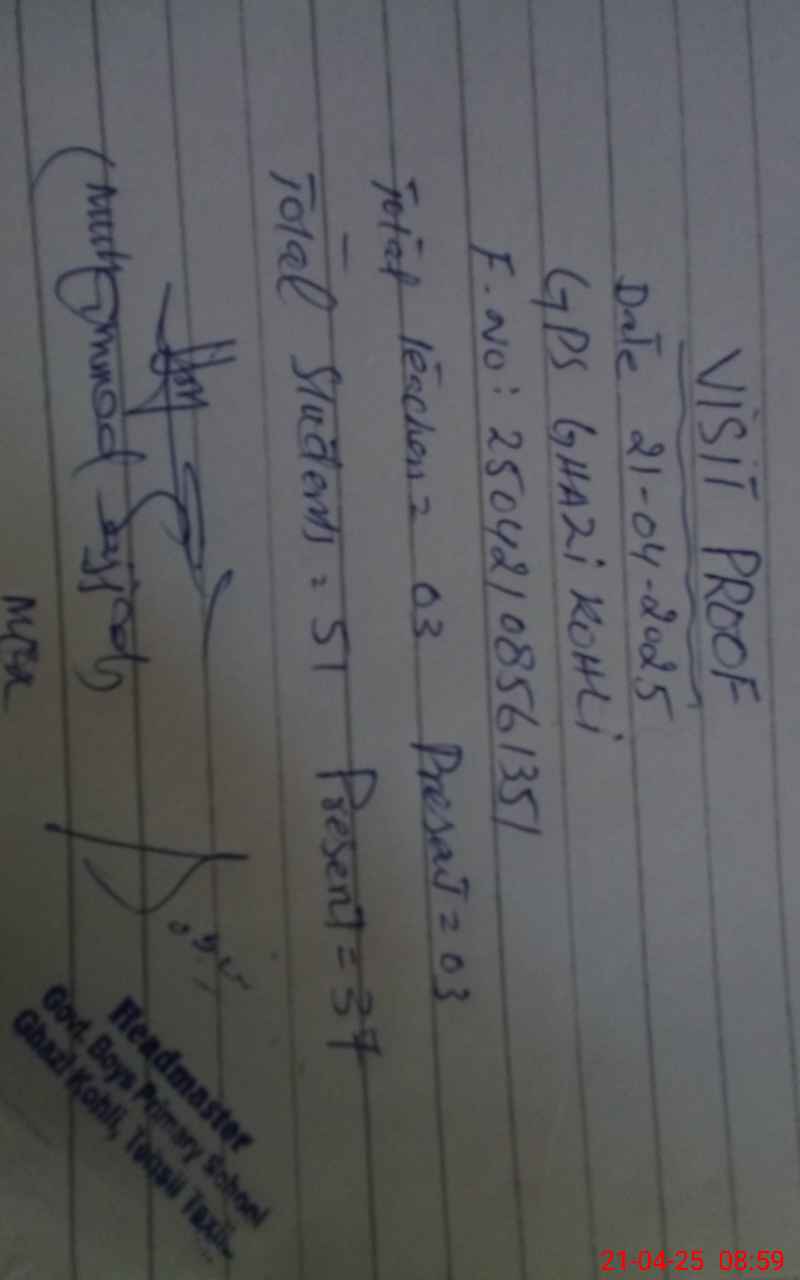 VISIT PROOF
Date 21-04-2025
GPS GHAZi KOHLi
F. No: 250421 08561351
Total Teachers = 03 Present = 03
Total Students = 51 Present = 37
(Muhammad Sajjad)
Headmaster
Govt. Boys Primary School
Ghazi Kohli, Tehsil
21-04-25 08:59